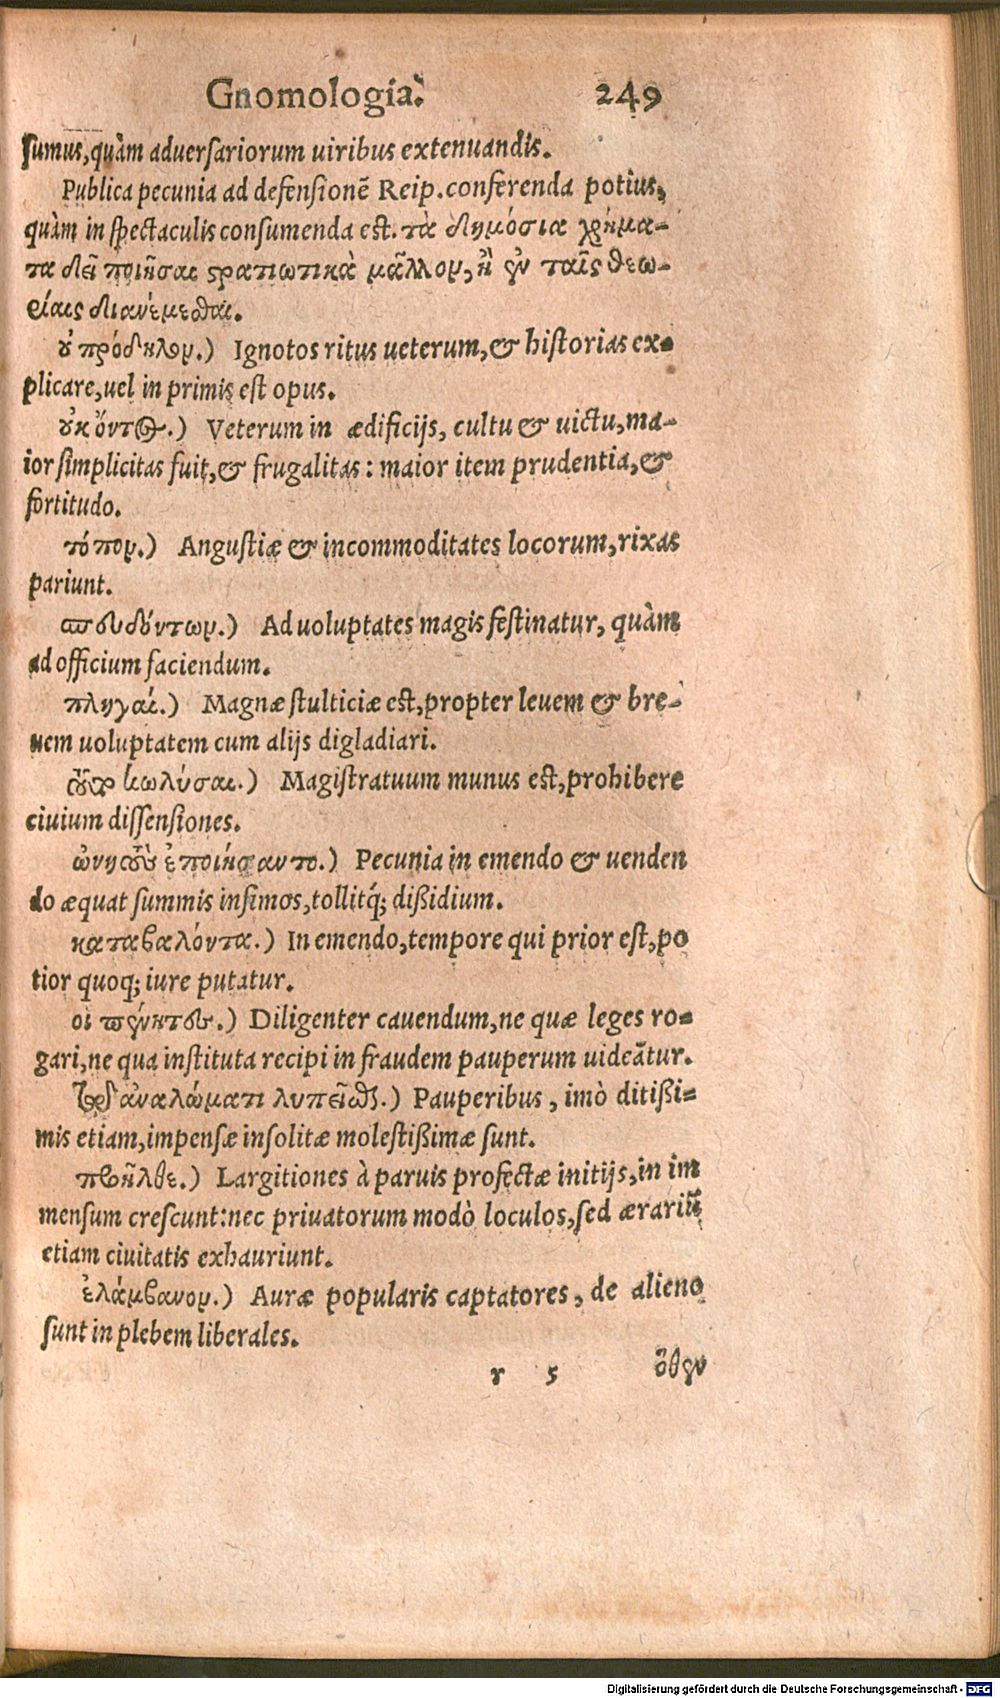 Gnomologia. 249
sumus, quàm aduersariorum uiribus extenuandis.
Publica pecunia ad defensionē Reip. conferenda potius,
quàm in spectaculis consumenda est. τὰ δημόσια χρήμα-
τα δεῖ ποιῆσαι ϛρατιωτικὰ μᾶλλον, ἢ ἐν ταῖς θεω-
ρίαις διανέμεσθαι.
οὐ πρόδηλον.) Ignotos ritus ueterum, & historias ex-
plicare, uel in primis est opus.
οὐκ ὄντος.) Veterum in ædificijs, cultu & uictu, ma-
ior simplicitas fuit, & frugalitas: maior item prudentia, &
fortitudo.
τόπον.) Angustiæ & incommoditates locorum, rixas
pariunt.
σπευδόντων.) Ad uoluptates magis festinatur, quàm
ad officium faciendum.
πληγαί.) Magnæ stulticiæ est, propter leuem & bre-
uem uoluptatem cum alijs digladiari.
κωλύσαι.) Magistratuum munus est, prohibere
ciuium dissensiones.
ὠνητὰς ἐποιήσαντο.) Pecunia in emendo & uenden
do æquat summis infimos, tollitq́; dißidium.
καταβαλόντα.) In emendo, tempore qui prior est, po
tior quoq; iure putatur.
οἱ πένητες.) Diligenter cauendum, ne quæ leges ro-
gari, ne qua instituta recipi in fraudem pauperum uideātur.
ἀναλώματι λυπεῖσθαι.) Pauperibus, imò ditißi-
mis etiam, impensæ insolitæ molestißimæ sunt.
προῆλθε.) Largitiones à paruis profectæ initijs, in im
mensum crescunt: nec priuatorum modò loculos, sed ærariū
etiam ciuitatis exhauriunt.
ἐλάμβανον.) Auræ popularis captatores, de alieno
sunt in plebem liberales.
r 5 ὅθεν
Digitalisierung gefördert durch die Deutsche Forschungsgemeinschaft - DFG